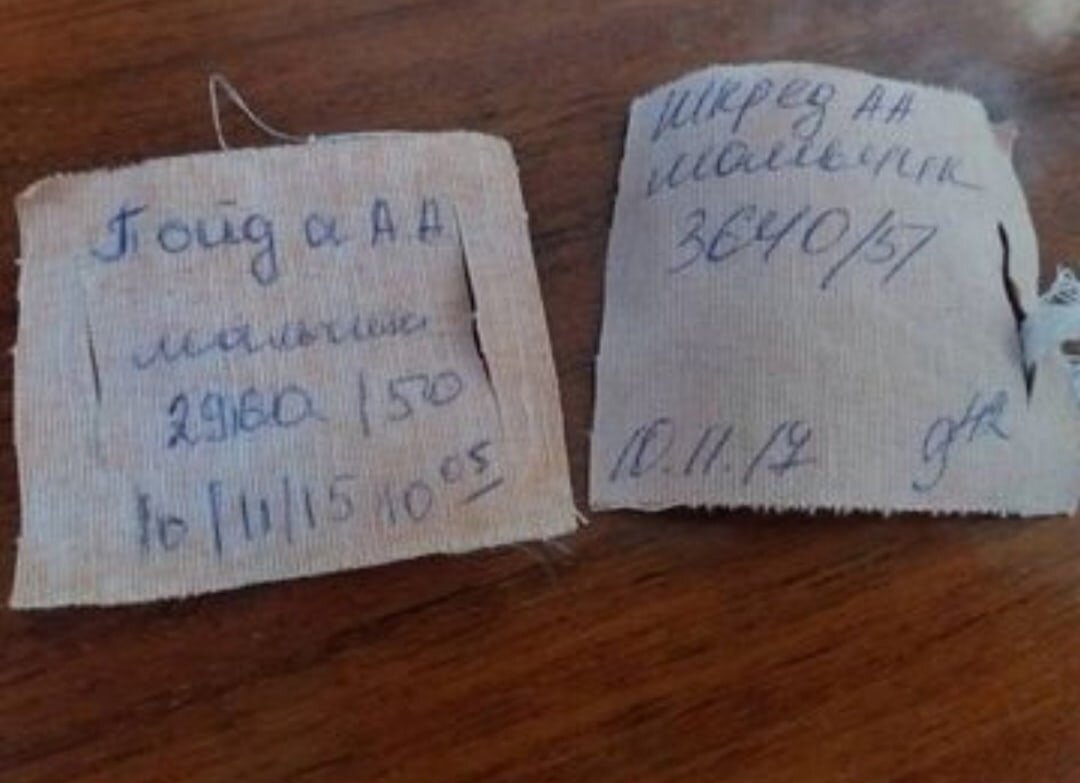 Гойда А А
мальчик
2960 / 50
10/11/15 10 05
Шкред АА
мальчик
3640/57
10.11.17 9 42